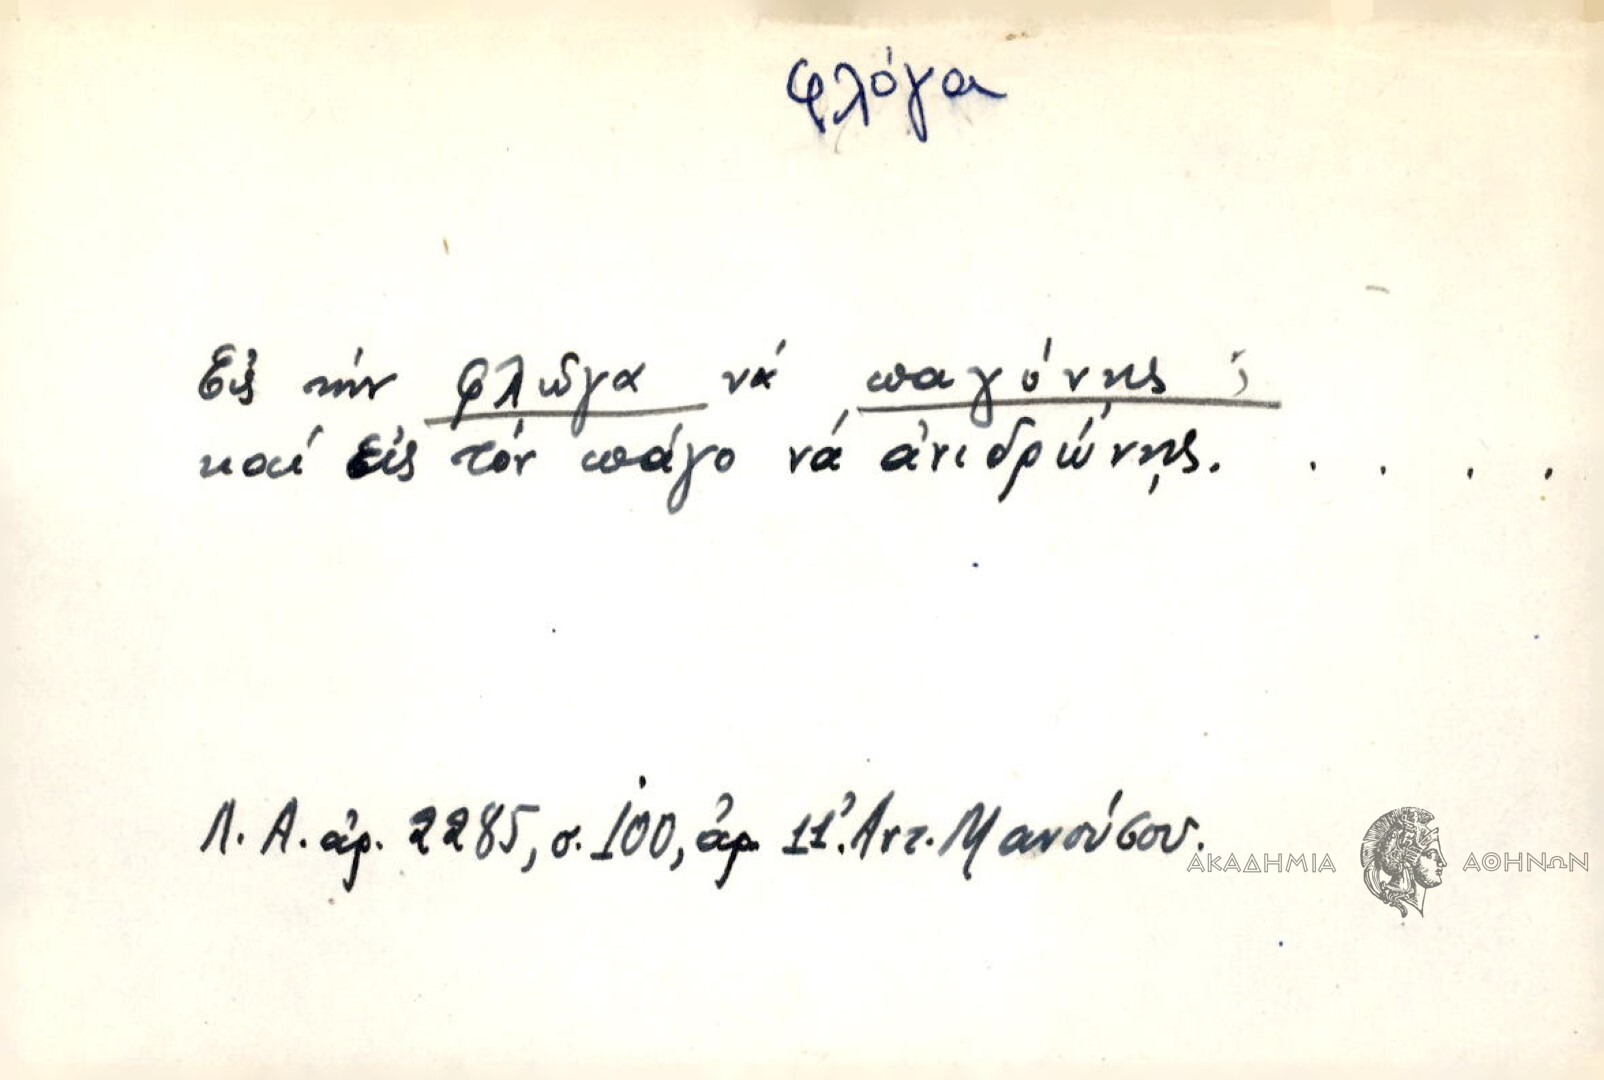 φλόγα
Εἰς τήν φλῶγα νά παγόνης ;
καί εἰς τόν πάγο νά ἀνιδρώνῃς. . . . .
Λ. Α. ἀρ. 2285, σ. 100, ἀρ. 11. Ἀντ. Μανούσου.
ΑΚΑΔΗΜΙΑ ΑΘΗΝΩΝ